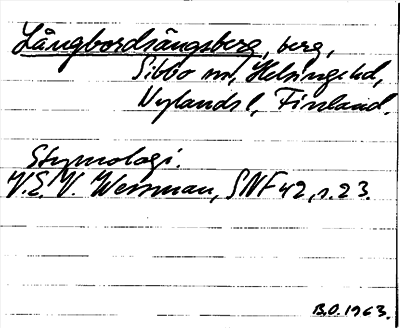 Långbordsängsberg, berg,
Sibbo sn, Helsinge hd,
Nylands l, Finland.
Etymologi.
V.E.V. Wessman, SNF 42, s. 23.
B.O. 1963.